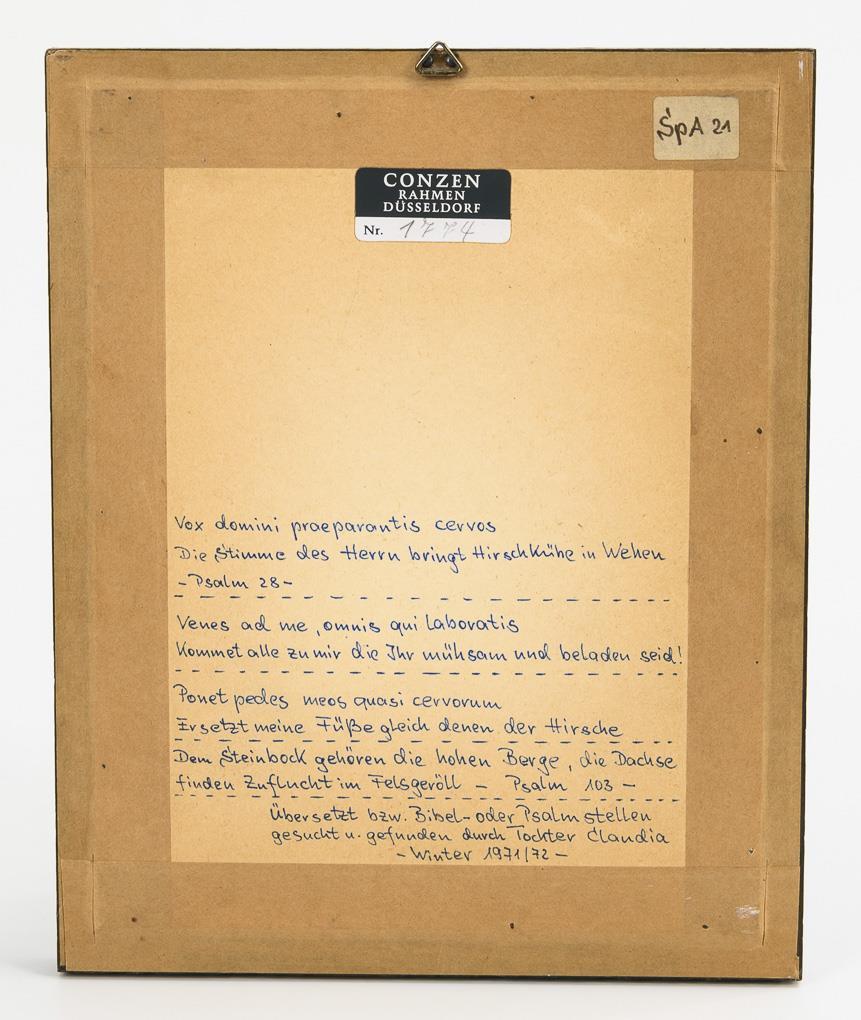 ŚpA 21
CONZEN
RAHMEN
DÜSSELDORF
Nr. 1774
Vox domini praeparantis cervos
Die Stimme des Herrn bringt Hirschkühe in Wehen
-Psalm 28-
Venes ad me, omnis qui laboratis
Kommet alle zu mir die Ihr mühsam und beladen seid!
Ponet pedes meos quasi cervorum
Ersetzt meine Füße gleich denen der Hirsche
Dem Steinbock gehören die hohen Berge, die Dachse
finden Zuflucht im Felsgeröll - Psalm 103 -
Übersetzt bzw. Bibel- oder Psalmstellen
gesucht u. gefunden durch Tochter Claudia
- Winter 1971/72 -